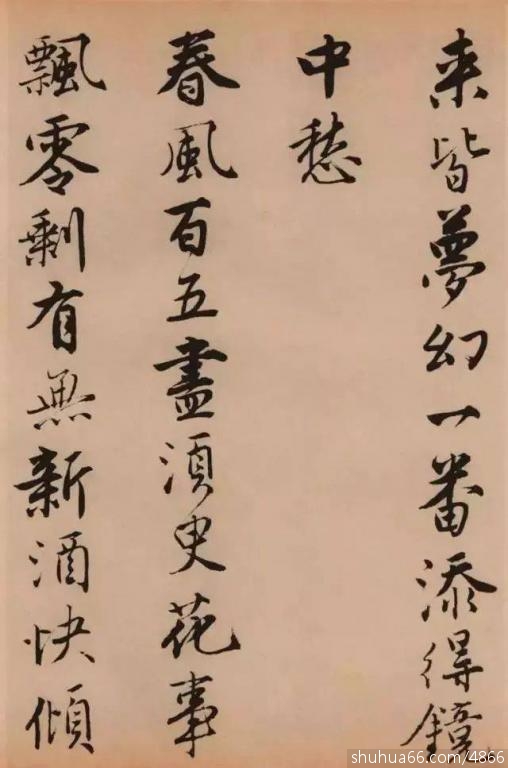 来皆夢幻一番添得鏡
中愁
春風百五盡須臾花事
飄零剩有無新酒快傾
shuhua66.com/4866